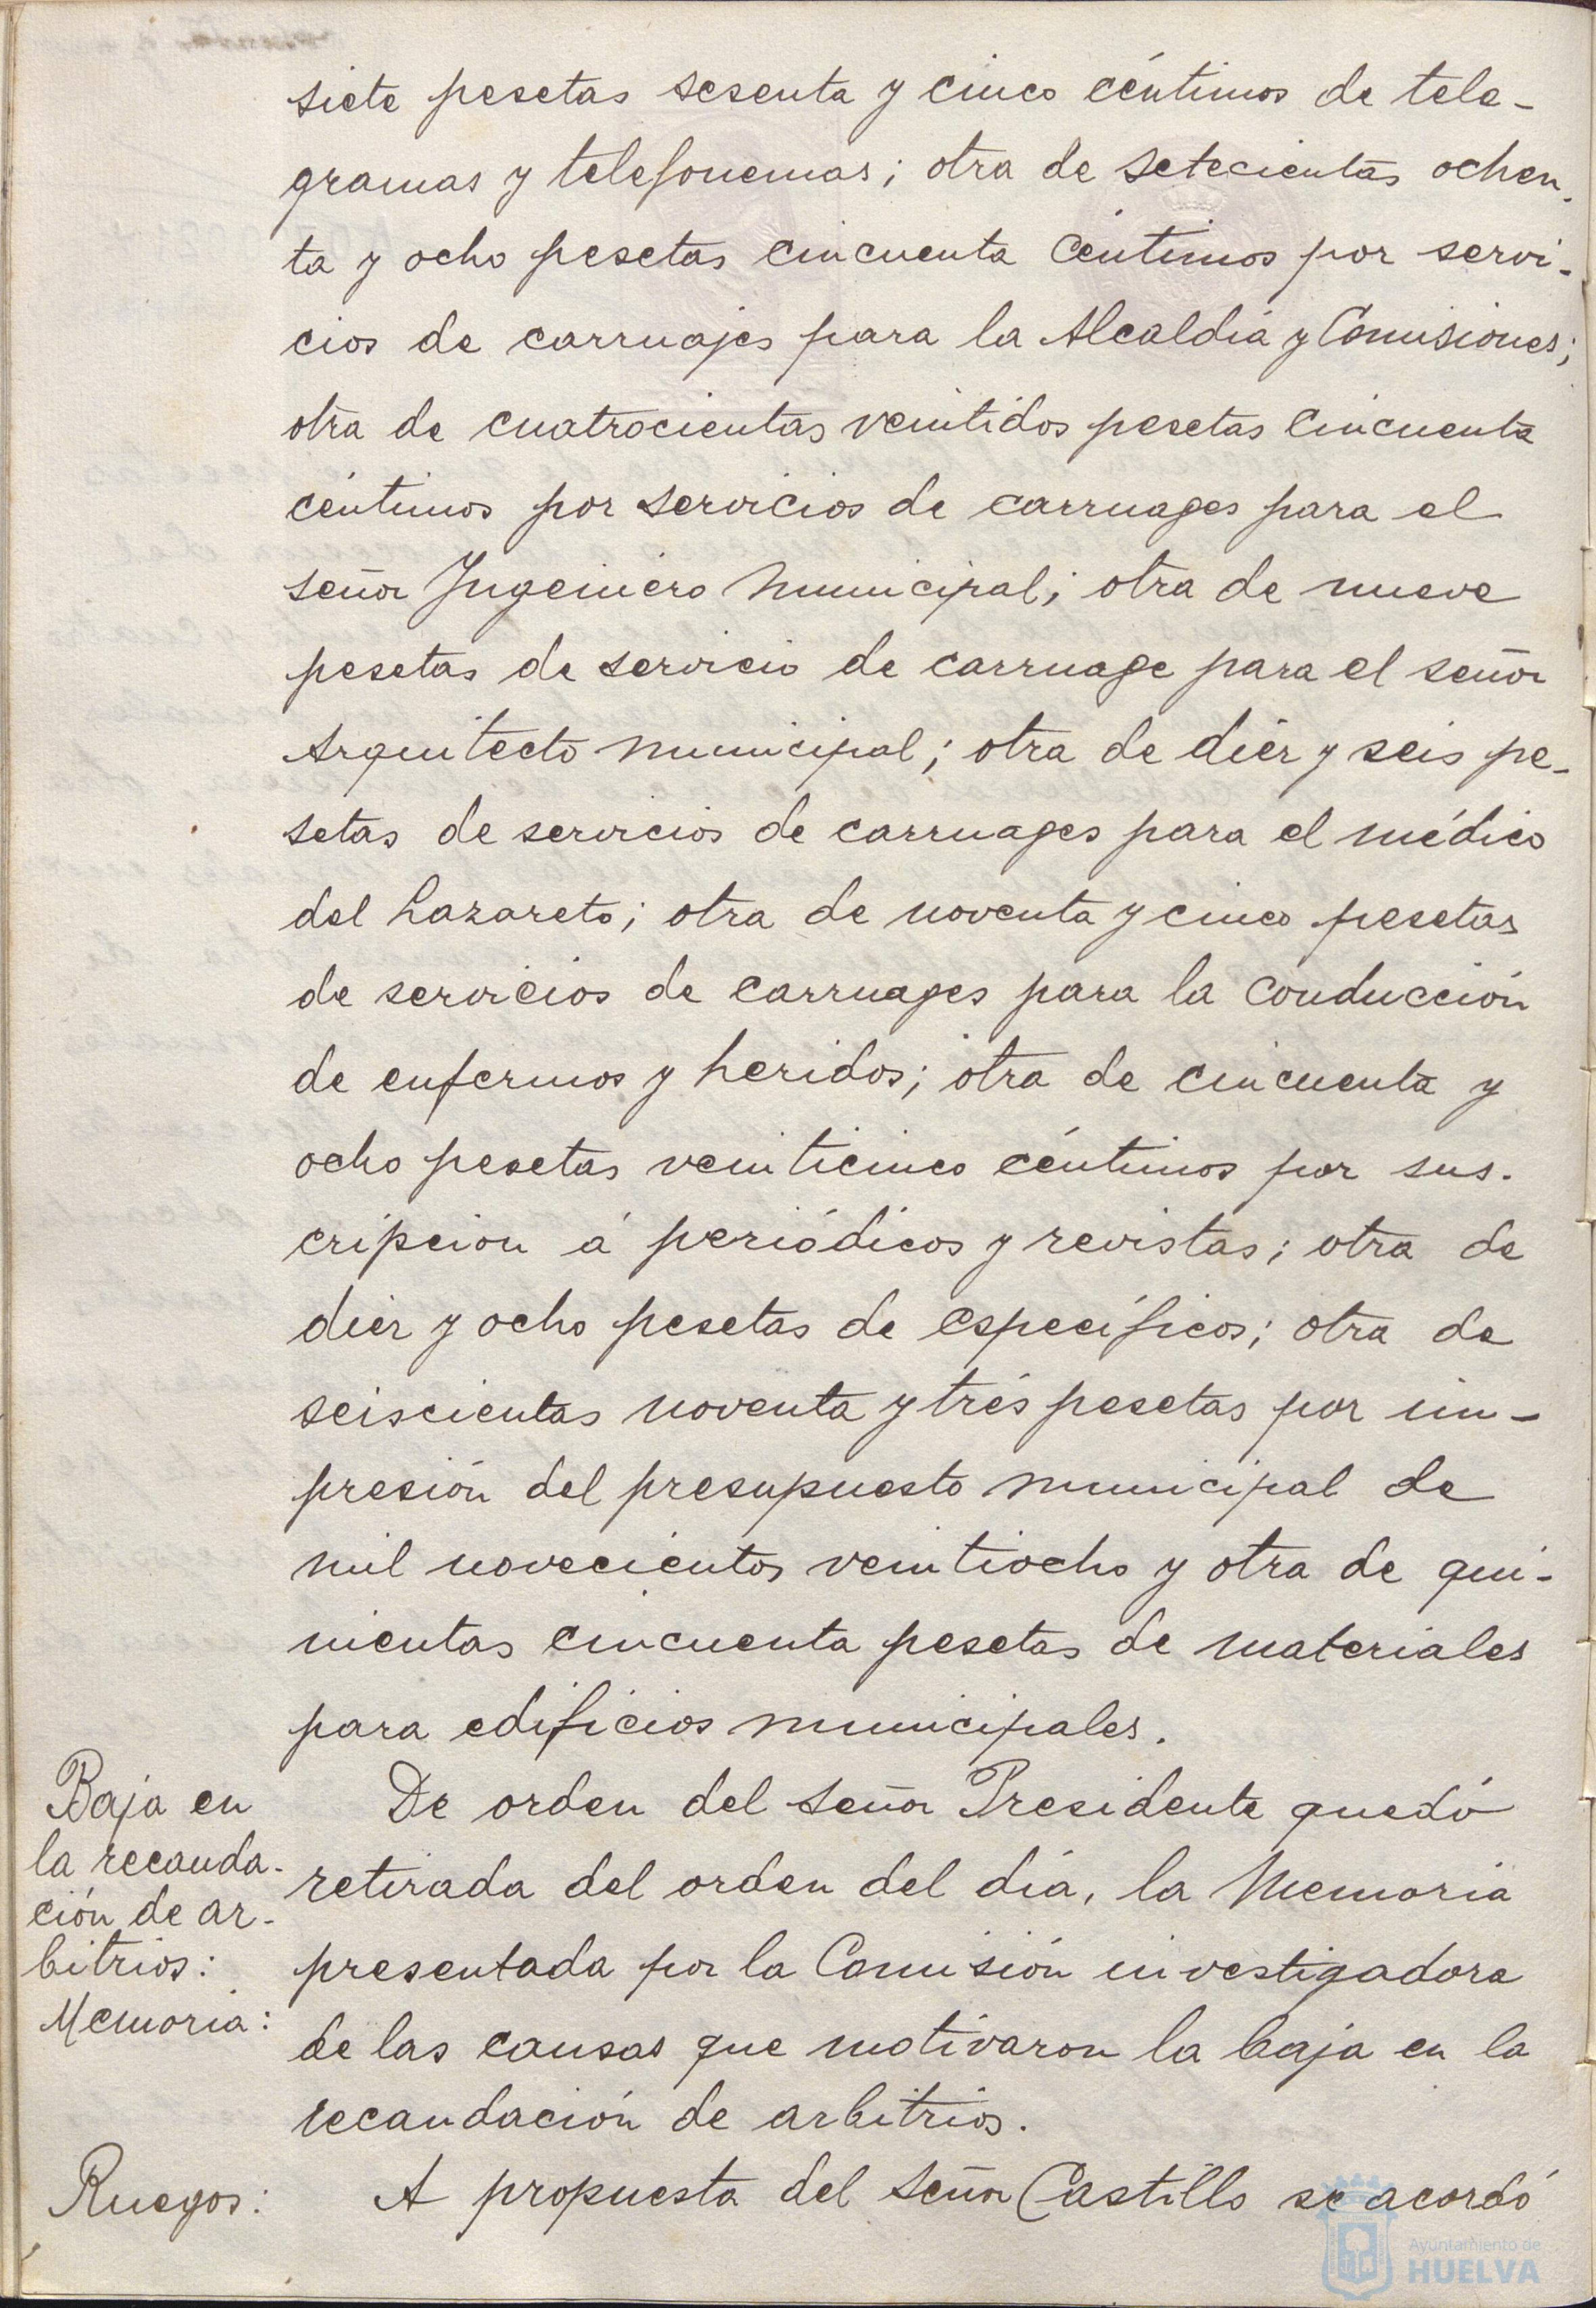 siete pesetas sesenta y cinco céntimos de tele-
gramas y telefonemas; otra de setecientas ochen-
ta y ocho pesetas cincuenta céntimos por servi-
cios de carruajes para la Alcaldía y Comisiones;
otra de cuatrocientas veintidos pesetas cincuenta
céntimos por servicios de carruages para el
señor Ingeniero Municipal; otra de nueve
pesetas de servicio de carruage para el señor
Arquitecto municipal; otra de diér y seis pe-
setas de servicios de carruages para el médico
del Lazareto; otra de noventa y cinco pesetas
de servicios de carruages para la conducción
de enfermos y heridos; otra de cincuenta y
ocho pesetas veinticinco céntimos por sus-
cripcion á periódicos y revistas; otra de
diér y ocho pesetas de específicos; otra de
seiscientas noventa y trés pesetas por im-
presión del presupuesto municipal de
mil novecientos veintiocho y otra de qui-
nientas cincuenta pesetas de materiales
para edificios municipales.
Baja en
la recauda-
ción de ar-
bitrios:
Memoria:
De orden del señor Presidente quedó
retirada del orden del día, la Memoria
presentada por la Comisión investigadora
de las causas que motivaron la baja en la
recaudación de arbitrios.
Ruegos:
A propuesta del señor Castillo se acordó
Ayuntamiento de
HUELVA